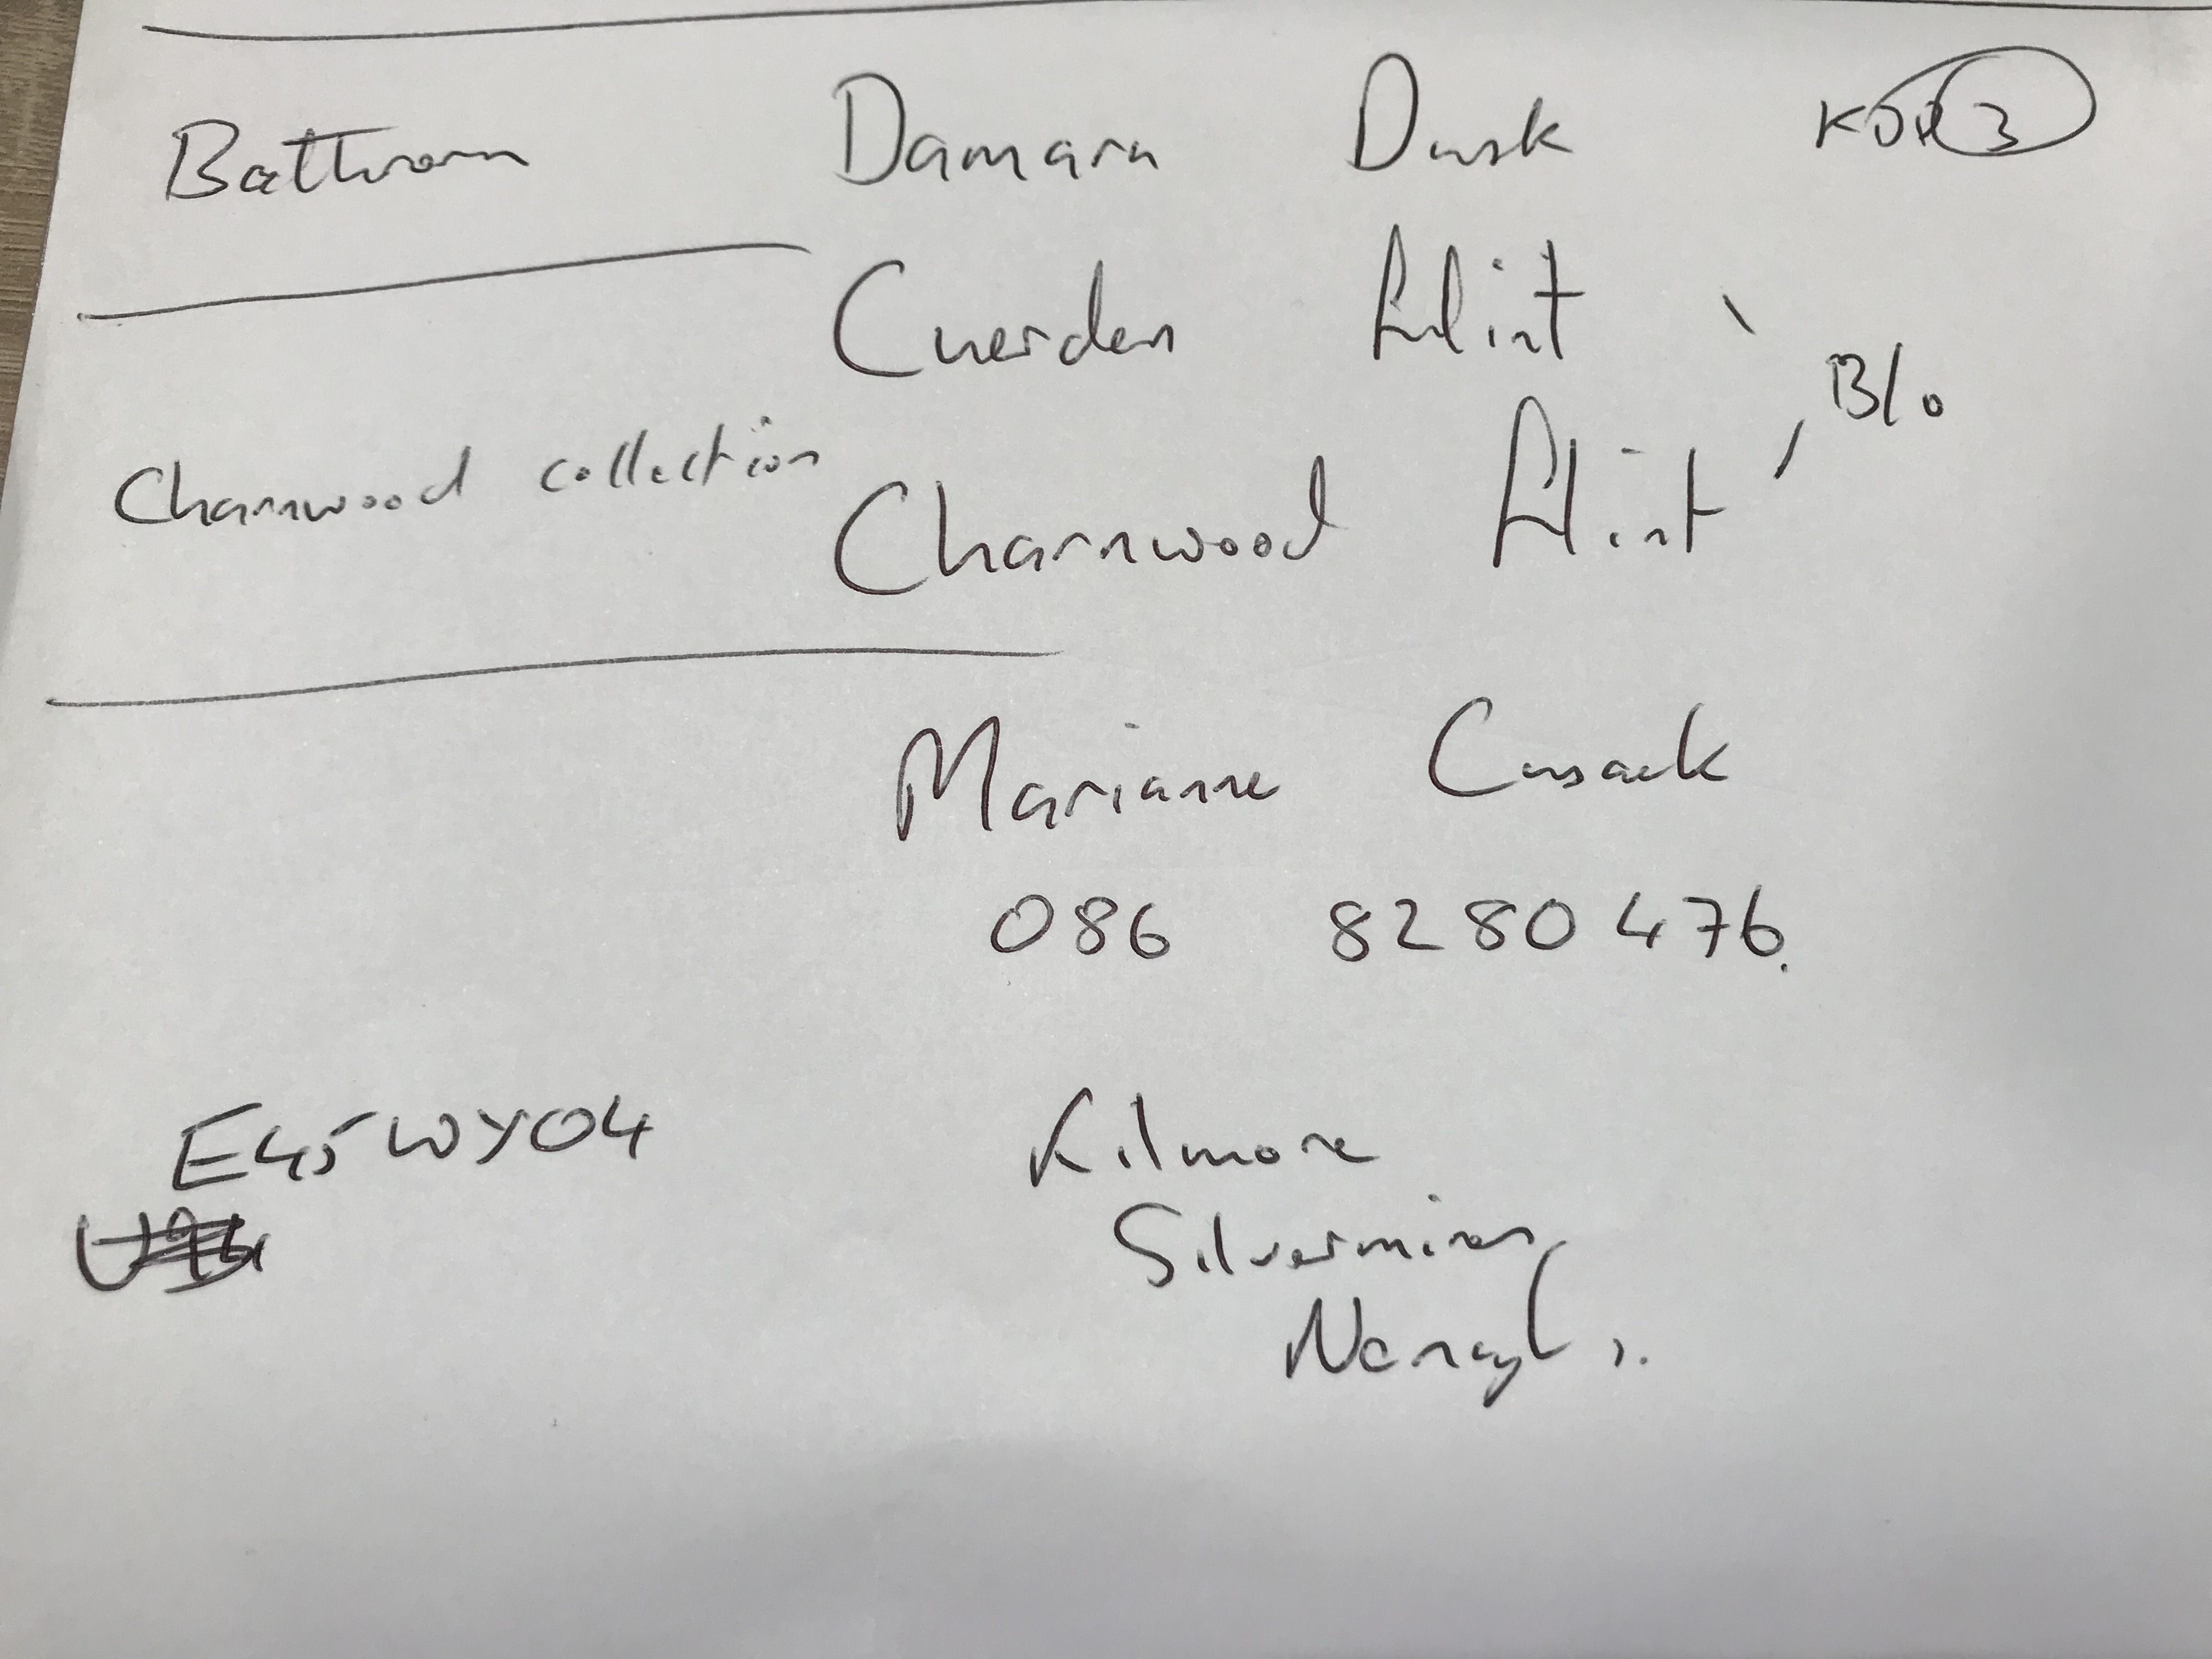 Bathroom Damara Dusk KDR 3
Cuerden Flint
B/o
Charnwood collection Charnwood Flint
Marianne Cusack
086 8280476.
E45WY04 Kilmore
Silvermines
Nenagh